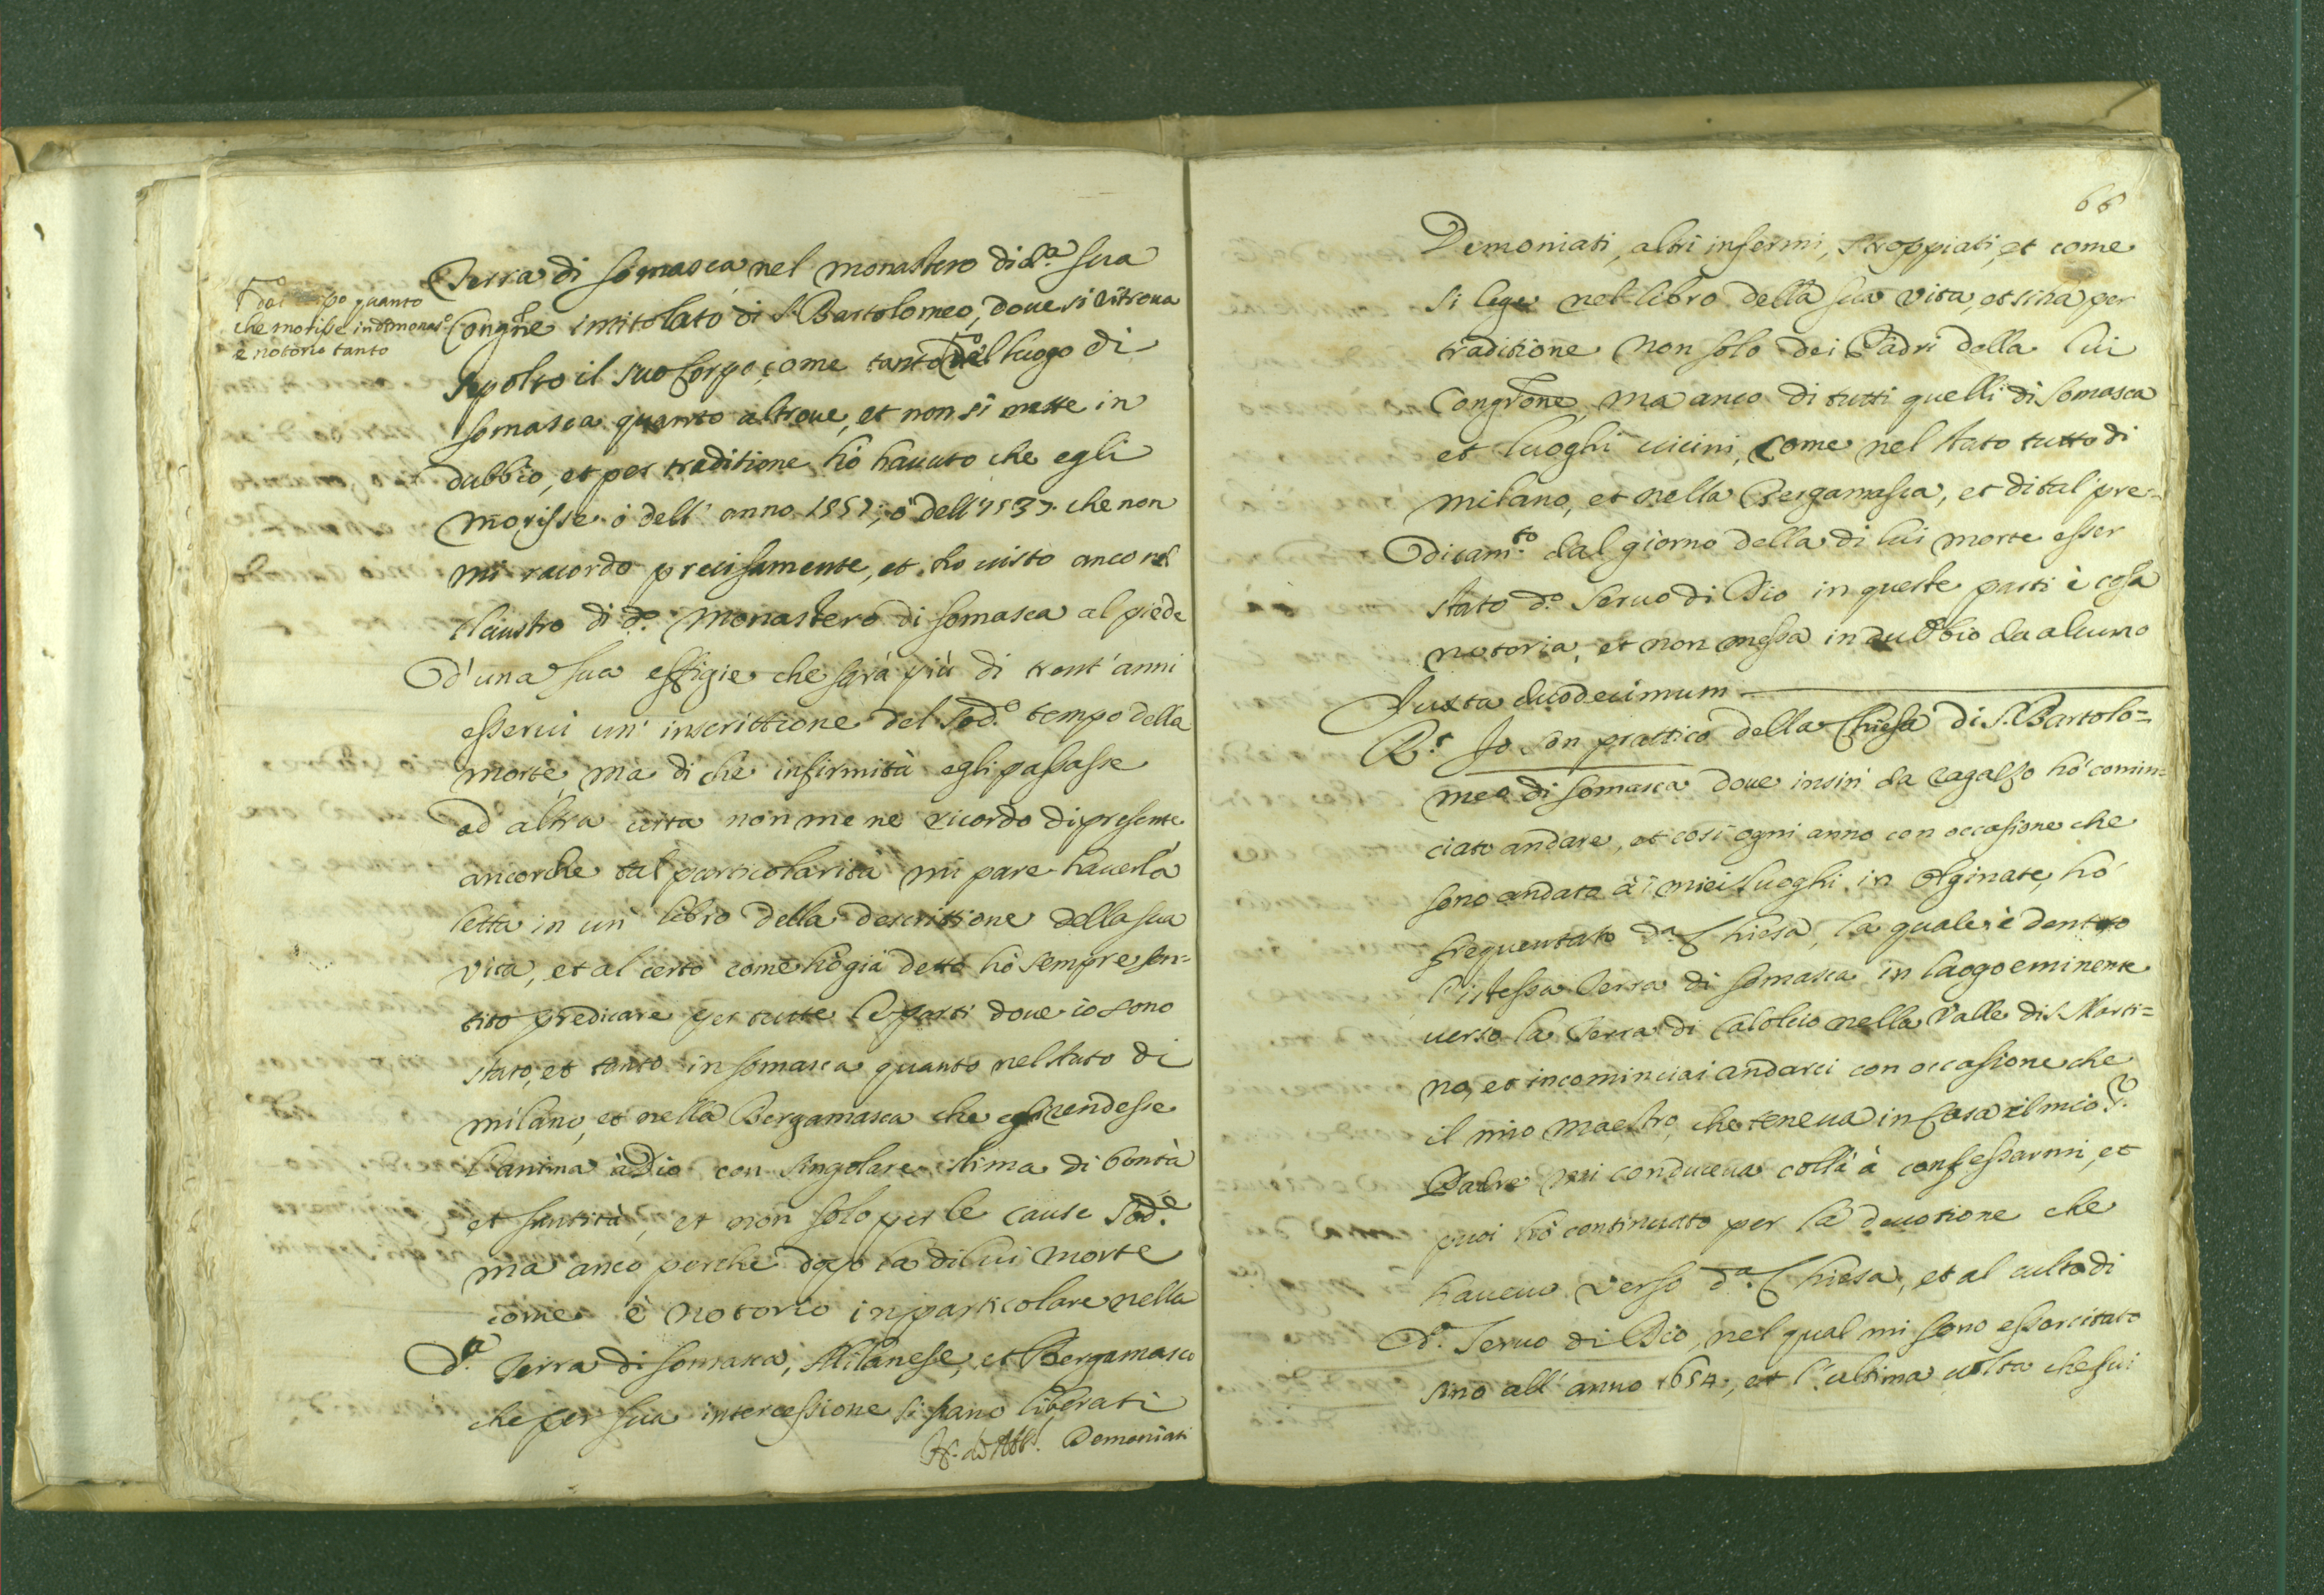 Terra di Somasca nel monastero di d.ª sua
Congne intitolato di S. Bartolomeo, doue si ritroua
sepolto il suo Corpo, come tanto del luogo di
Somasca quanto altroue, et non si mette in
dubbio, et per traditione hò hauuto che egli
morisse ò dell' anno 1557, ò dell' 1537. che non
mi racordo precisamente, et ho uisto anco nel
claustro di d.º Monastero di Somasca al piede
d'una sua effigie che sarà più di trent'anni
esserui un' inscrittione del sod.º tempo della
morte, ma di che infirmità egli passasse
ad altra uita non me ne ricordo di presente
ancorche tal particolarità mi pare hauerla
letta in un' libro della descrittione della sua
vita, et al certo come hò già detto hò sempre sen=
tito predicare per tutte le parti doue io sono
stato, et tanto in Somasca quanto nel stato di
Milano, et nella Bergamasca che egli rendesse
l'anima à Dio con singolare stima di bontà
et santità, et non solo per le cause sod.e
ma anco perche dopo la di lui morte
come è notorio in particolare nella
d.ª Terra di Somasca, Milanese, et Bergamasco
che per sua intercessione si siano liberati
Demoniati
quanto
che morisse in d.o monas.o
è notorio tanto
66
Demoniati, altri infermi, stroppiati, et come
si lege nel libro della sua vita, et si ha per
traditione non solo dei Padri della lui
Congrone, ma anco di tutti quelli di Somasca
et luoghi uicini, come nel stato tutto di
Milano, et nella Bergamasca, et di tal pre=
dicam.to dal giorno della di lui morte esser
stato d.º Seruo di Dio in queste parti è cosa
notoria, et non messa in dubbio da alcuno
Iuxta duodecimum
R.t Io son prattico della Chiesa di S. Bartolo=
meo di Somasca doue insin' da ragazzo hò comin=
ciato andare, et così ogni anno con occasione che
sono andato à i miei luoghi in Olginate, hò
frequentato d.ª Chiesa, la quale è dentro
l'istessa Terra di Somasca in luogo eminente
uerso la Terra di Calolcio nella Valle di S. Marti=
no, et incominciai andarci con occasione che
il mio maestro, che teneua in Casa il mio S.r
Padre mi conduceua collà à confessarmi, et
puoi hò continuato per la deuotione che
haueuo verso d.ª Chiesa, et al culto di
d.º Seruo di Dio, nel qual mi sono essercitato
sino all' anno 1654, et l'ultima uolta che fui